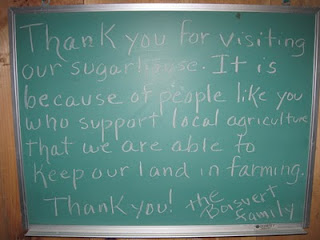 Thank you for visiting
our sugarhouse. It is
because of people like you
who support local agriculture
that we are able to
keep our land in farming.
Thank you! the
Boisvert
family